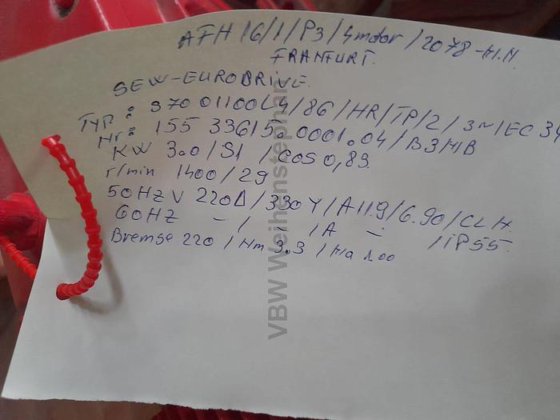 AFH 16/1/P3/4motor/2078-H.M
FRANFURT.
SEW-EURODRIVE.
TYP: S70 01100L4/86/HR/TP/2/3~IEC 34
Nr: 155 33615 0001.04/B3MB
KW 3.0/S1 /cos 0,83
r/min 1400/29
50HZ V 220Δ/330Y/A11.9/6.90/CLH
60HZ -/ -/ /A - //IP55
Bremse 220/Nm 3.3/Ma 200
VBW Weihenstephan